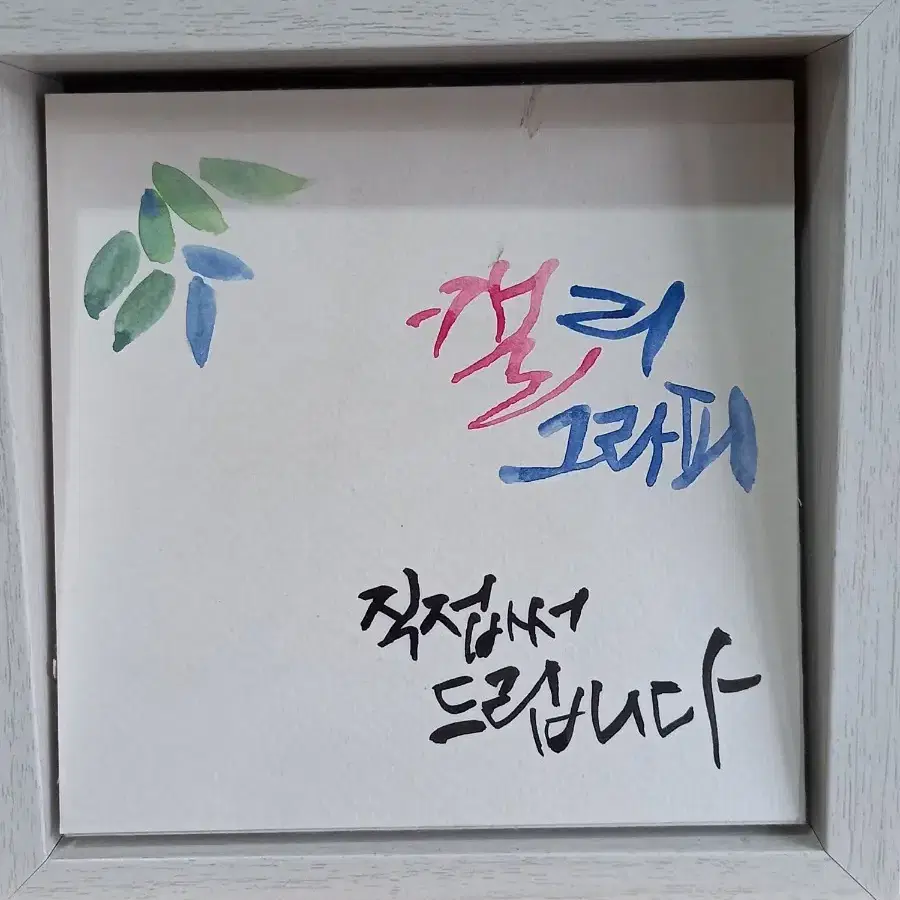 캘리
그라피
직접써
드립니다